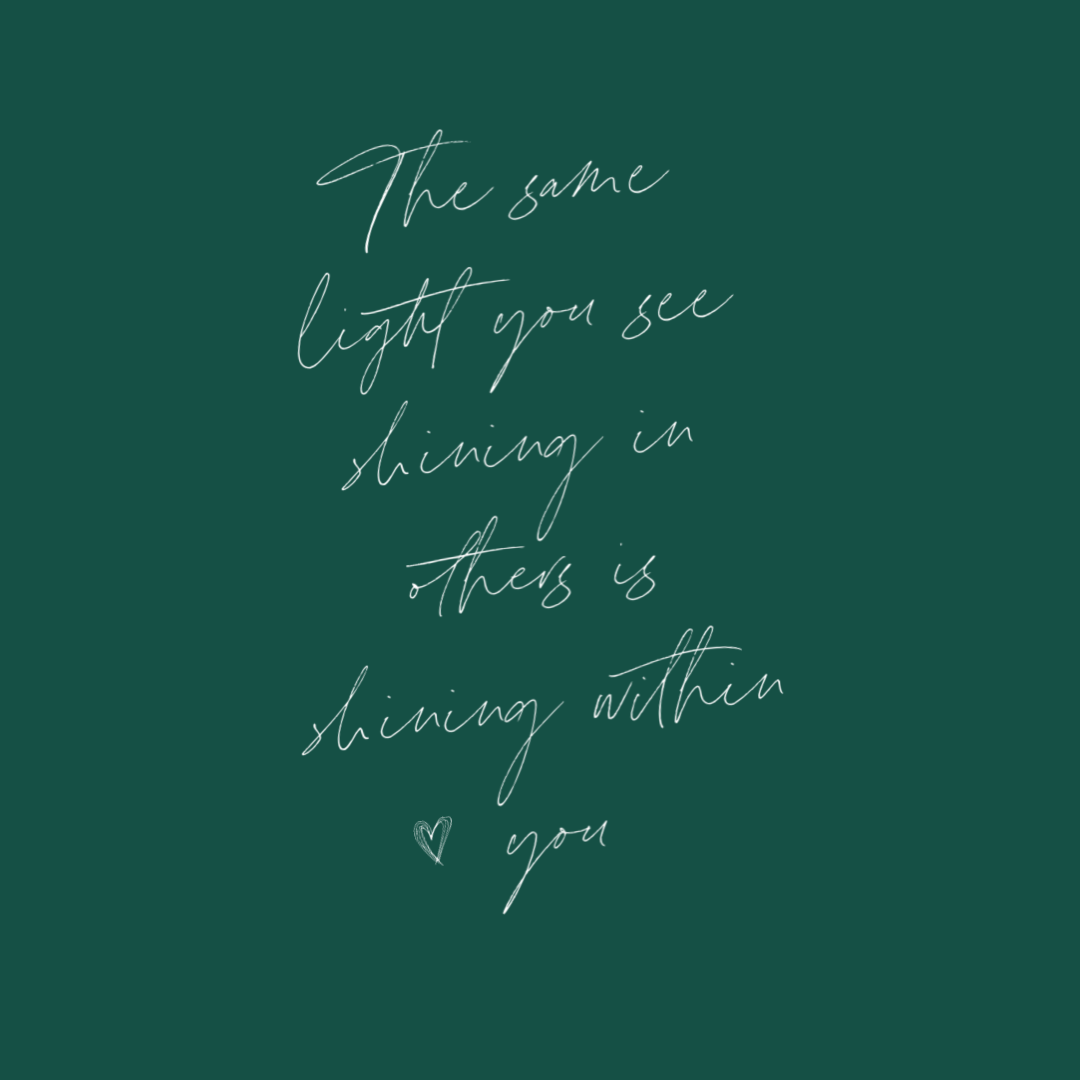 The same
light you see
shining in
others is
shining within
♡ you